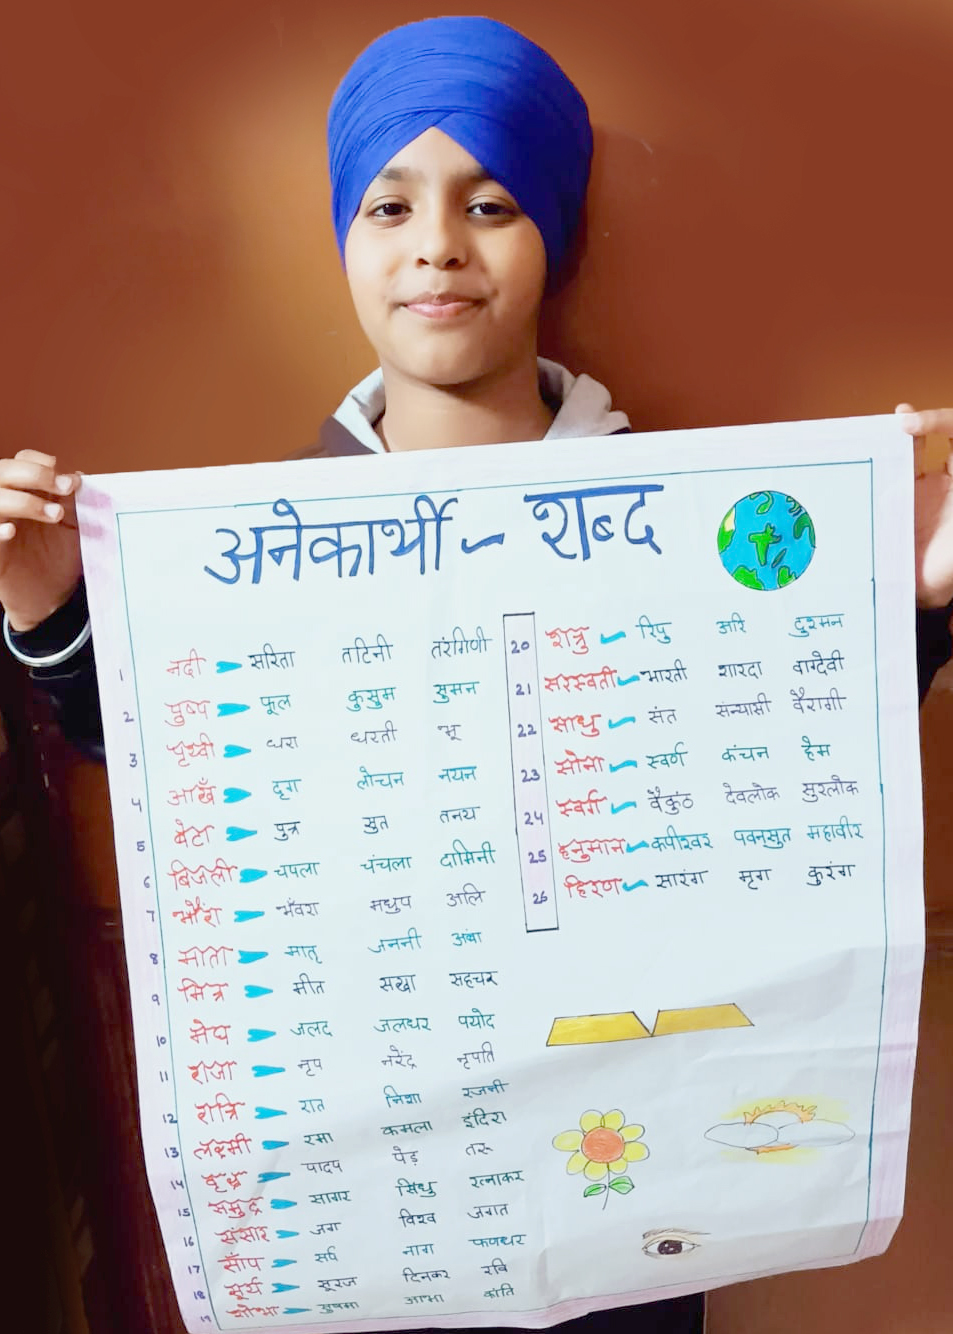 अनेकार्थी - शब्द
1 नदी सरिता तटिनी तरंगिणी
2 पुष्प फूल कुसुम सुमन
3 पृथ्वी धरा धरती भू
4 आँख दृग लोचन नयन
5 बेटा पुत्र सुत तनय
6 बिजली चपला चंचला दामिनी
7 भौंरा भँवरा मधुप अलि
8 माता मातृ जननी अंबा
9 मित्र मीत सखा सहचर
10 मेघ जलद जलधर पयोद
11 राजा नृप नरेंद्र नृपति
12 रात्रि रात निशा रजनी
13 लक्ष्मी रमा कमला इंदिरा
14 वृक्ष पादप पेड़ तरू
15 समुद्र सागर सिंधु रत्नाकर
16 संसार जग विश्व जगत
17 साँप सर्प नाग फणधर
18 सूर्य सूरज दिनकर रवि
19 शोभा सुषमा आभा कांति
20 शत्रु रिपु अरि दुश्मन
21 सरस्वती भारती शारदा वाग्देवी
22 साधु संत संन्यासी वैरागी
23 सोना स्वर्ण कंचन हेम
24 स्वर्ग वैकुंठ देवलोक सुरलोक
25 हनुमान कपीश्वर पवनसुत महावीर
26 हिरण सारंग मृग कुरंग